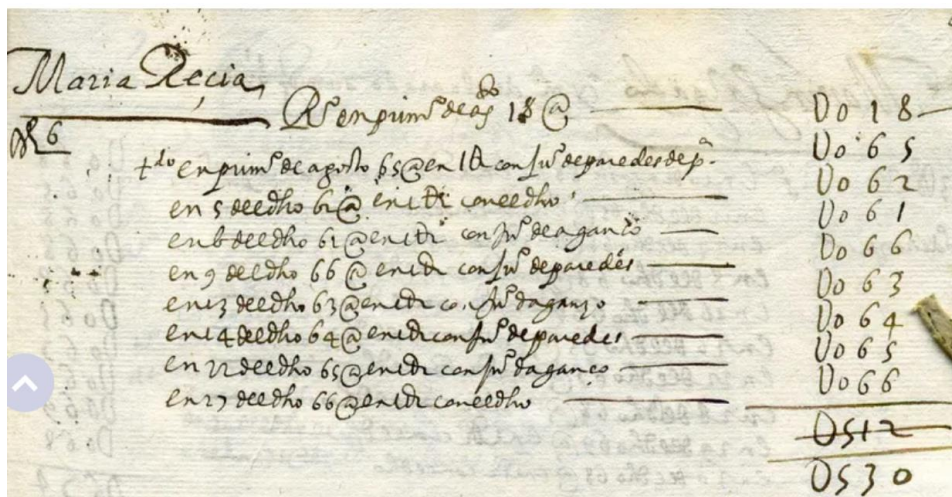 Maria Recia
Rᵒ en primᵒ de agᵗᵒ 18 @ U018
86
+ᵈᵒ en primᵒ de agosto 65@ en 1 con juᵒ de paredes de U065
en 5 deedho 62@ en 1 con eedho U062
en 6 deedho 61@ en 1 con juᵒ de aganço U061
en 9 deedho 66@ en 1 con juᵒ de paredes U066
en 13 deedho 63@ en 1 con juᵒ daganço U063
en 14 deedho 64@ en 1 con juᵒ de paredes U064
en 22 deedho 65@ en 1 con juᵒ daganço U065
en 27 deedho 66@ en 1 con eedho U066
U512
U530